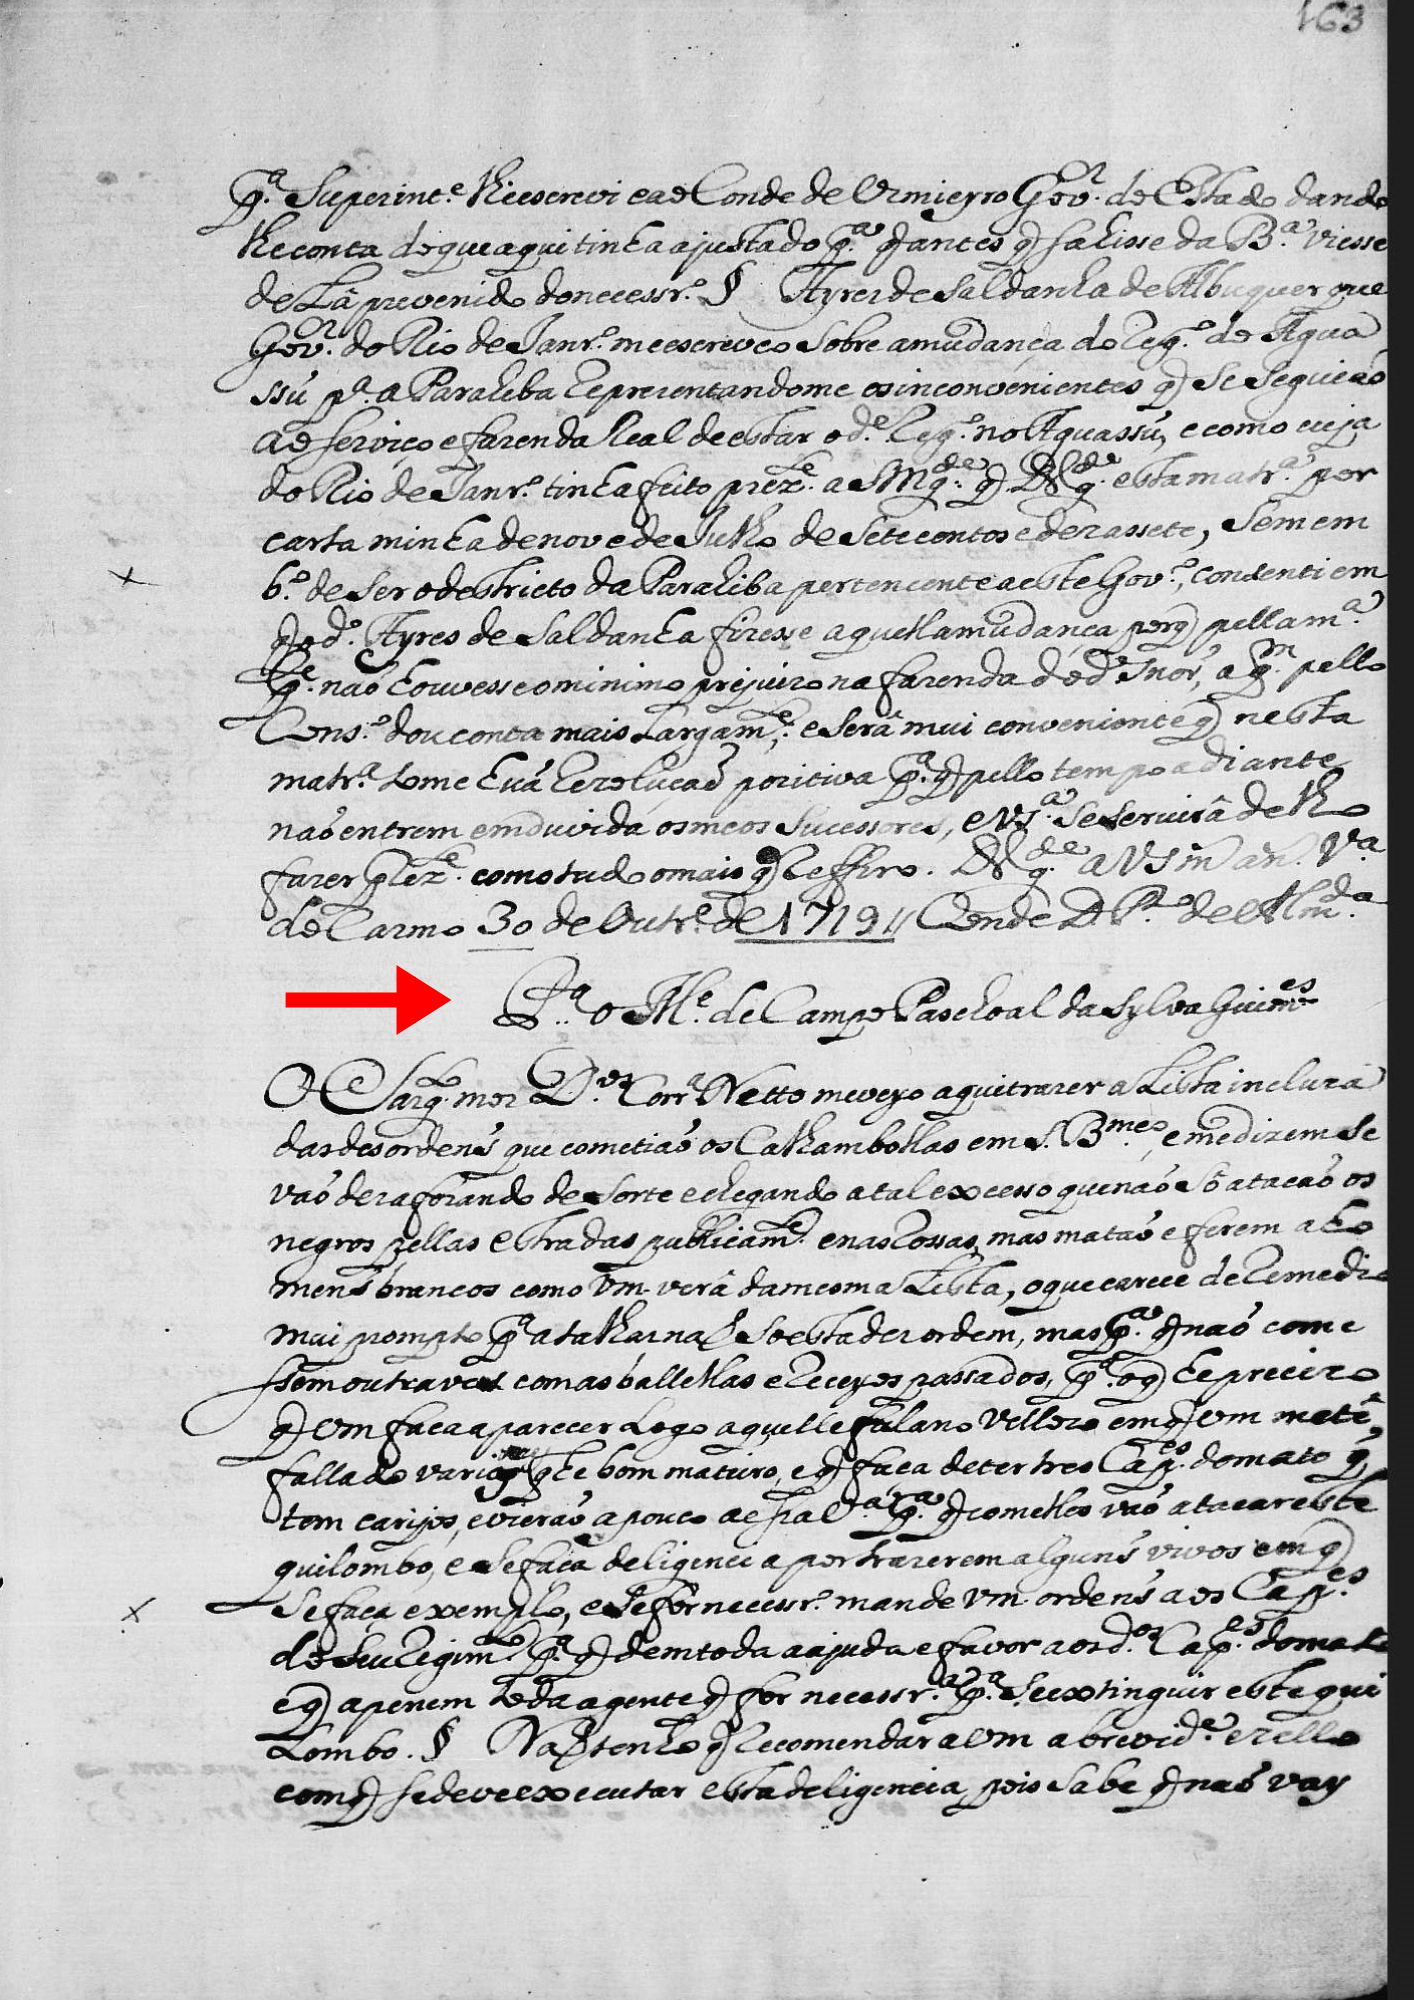 163
p.ª Superint.e lhe escrevi e ao Conde de Vimieyro Gov.or do Estado dando
lhe conta de que aqui tinha ajustado p.ª q̃ antes q̃ sahisse da B.ª viesse
de Lá prevenido do necessr.º § Ayres de Saldanha de Albuquerque
Gov.or do Rio de Janr.º me escreveo sobre a mudança do Reg.º de Agua
ssú p.ª a Parahiba representandome os inconvenientes q̃ se seguião
ao serviço e fazenda Real de estar o d.º Reg.º no Aguassú, e como eu ja
do Rio de Janr.º tinha feito prez.te a S Mg.de q̃ D.s g.de esta matr.ª por
carta minha de nove de Julho de setecentos e dezassete, sem em
b.º de ser o destricto da Parahiba pertencente a este Gov.º, consenti em
q̃ o d.º Ayres de Saldanha fizesse aquella mudança porq̃ pella m.ª
p.te não houvesse o minimo prejuizo na fazenda do d.º Snõr, a q.m pello
Cons.º dou conta mais Largam.te, e será mui conveniente q̃ nesta
matr.ª tome huã rezolução pozitiva p.ª q̃ pello tempo adiante
não entrem em duvida os meos sucessores, e VS.ª se servirá de lho
fazer prez.te como tudo o mais q̃ reffiro. D.s g.de a VS m.s an.s V.ª
do Carmo 30 de Outr.º de 1719 // Conde D P.º de Alm.da
P.ª o M.e de Campo Paschoal da Sylva Guim.es
O Sarg.to mor D.os Corr.ª Netto me veyo aqui trazer a Lista incluza
das desordens que cometião os Calhambollas em S. B.meo, e me dizem se
vão dezaforando de sorte e chegando a tal excesso que não só atacão os
negros pellas estradas publicam.te e nas rossas, mas matão e ferem a ho
mens brancos como Vm. verá da mesma Lista, o que carece de remedio
mui prompto p.ª atalhar na esta dezordem, mas p.ª q̃ não come
ssem outra vez com as balellas e receyos passados, p.ª o q̃ he precizo
q̃ Vm faça aparecer Logo aquelle fulano Vellozo em q̃ Vm me tê
fallado varias q̃ he bom maturo, e q̃ faça deter tres Cap.es do mato q̃
tem carijos, e vierão a pouco a essa V.ª p.ª q̃ com elles vão atacar este
quilombo, e se faça deligencia por trazerem alguns vivos em q̃
se faça exemplo, e se for necessr.º mande Vm ordens aos Cap.es
do seu Regim.to p.ª q̃ dem toda a ajuda e favor aos d.os Cap.es do mato
e q̃ apenem toda a gente q̃ for necessr.ª p.ª se extinguir este qui
Lombo. § Não tenho q̃ recomendar a Vm a brevid.e e zello
com q̃ se deve executar esta deligencia, pois sabe q̃ não vay